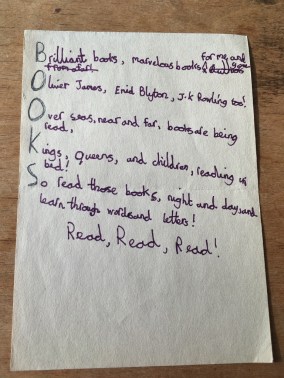 for me, and you
Brilliant books, marvelous books
from start authors
Oliver James, Enid Blyton, J.K Rowling too!
Over seas, near and far, books are being
read,
Kings, Queens, and children, reading in
bed!
So read those books, night and day, and
learn through words and letters!
Read, Read, Read!